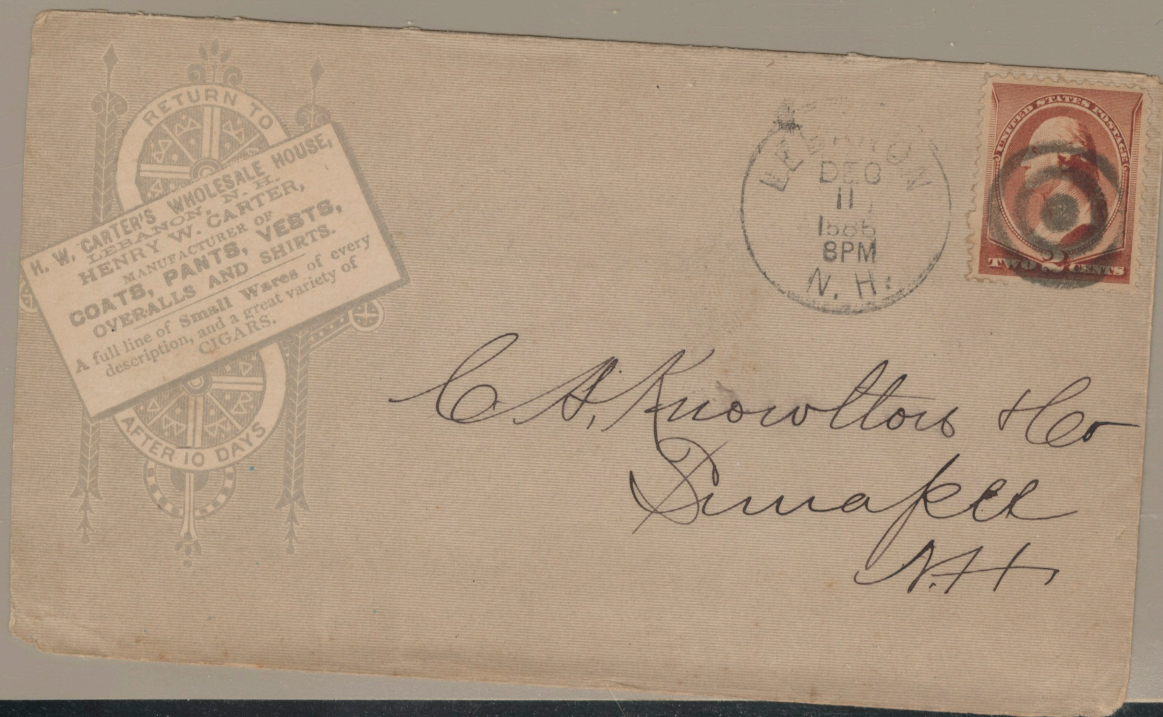 RETURN TO
H. W. CARTER'S WHOLESALE HOUSE,
LEBANON, N. H.
HENRY W. CARTER,
MANUFACTURER OF
COATS, PANTS, VESTS,
OVERALLS AND SHIRTS.
A full line of Small Wares of every
description, and a great variety of
CIGARS.
AFTER 10 DAYS
LEBANON
DEC
11
8PM
N. H.
UNITED STATES POSTAGE
TWO 2 CENTS
C. A. Knowlton & Co
Sunapee
N.H